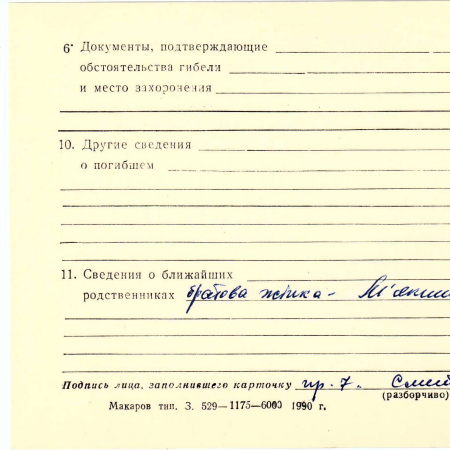 6. Документы, подтверждающие
обстоятельства гибели
и место захоронения
10. Другие сведения
о погибшем
11. Сведения о ближайших
родственниках братова жінка -
Подпись лица, заполнившего карточку пр. 7.
(разборчиво)
Макаров тип. З. 529—1175—6000 1990 г.